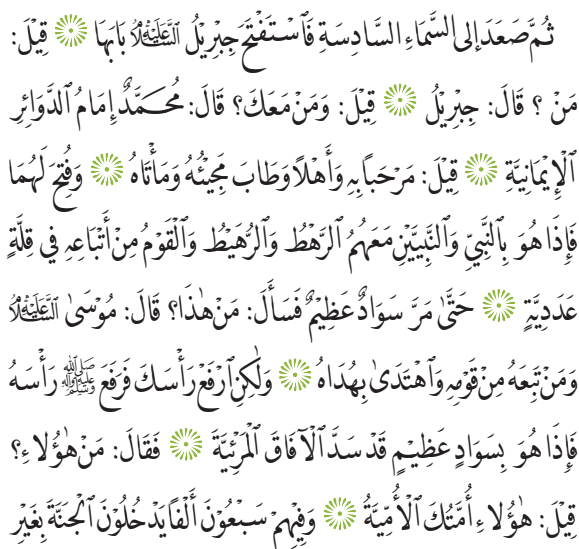 ثُمَّ صَعَدَ إِلَى السَّمَاءِ السَّادِسَةِ فَٱسْتَفْتَحَ جِبْرِيْلُ ۩ بَابَهَا ۞ قِيْلَ:
مَنْ ؟ قَالَ: جِبْرِيْلُ ۞ قِيْلَ: وَمَنْ مَعَكَ؟ قَالَ: مُحَمَّدٌ إِمَامُ الدَّوَائِرِ
ٱلْإِيْمَانِيَّةِ ۞ قِيْلَ: مَرْحَبًا بِهِ وَأَهْلًا وَطَابَ مَجِيْئُهُ وَمَأْتَاهُ ۞ وَفُتِحَ لَهُمَا
فَإِذَا هُوَ بِالنَّبِيِّ وَٱلنَّبِيِّيْنَ مَعَهُمُ ٱلرَّهْطُ وَٱلرُّهَيْطُ وَٱلْقَوْمُ مِنْ أَتْبَاعِهِ فِي قِلَّةٍ
عَدَدِيَّةٍ ۞ حَتَّىٰ مَرَّ سَوَادٌ عَظِيْمٌ فَسَأَلَ: مَنْ هٰذَا؟ قَالَ: مُوْسَىٰ الْعَلَيْهِ السَّلَامُ
وَمَنْ تَبِعَهُ مِنْ قَوْمِهِ وَٱهْتَدَىٰ بِهُدَاهُ ۞ وَلٰكِنِ ٱرْفَعْ رَأْسَكَ فَرَفَعَ ﷺ رَأْسَهُ
فَإِذَا هُوَ بِسَوَادٍ عَظِيْمٍ قَدْ سَدَّ ٱلْآفَاقَ ٱلْمَرْئِيَّةَ ۞ فَقَالَ: مَنْ هٰؤُلَاءِ؟
قِيْلَ: هٰؤُلَاءِ أُمَّتُكَ ٱلْأُمِّيَّةُ ۞ وَفِيْهِمْ سَبْعُوْنَ أَلْفًا يَدْخُلُوْنَ ٱلْجَنَّةَ بِغَيْرِ